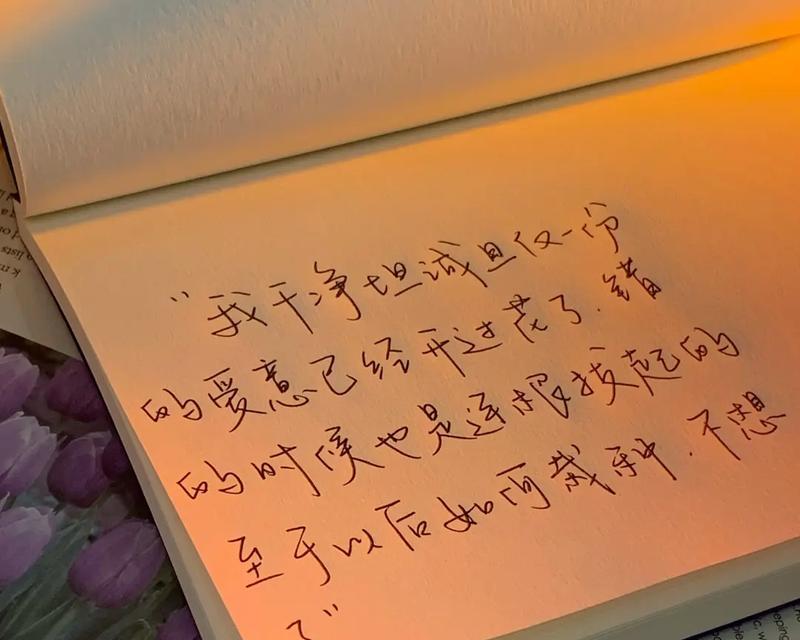 “我干净坦诚且仅一份
的爱意已经开过花了.错
的时候也是连根拔起的
至于以后如何栽种.不想
了”